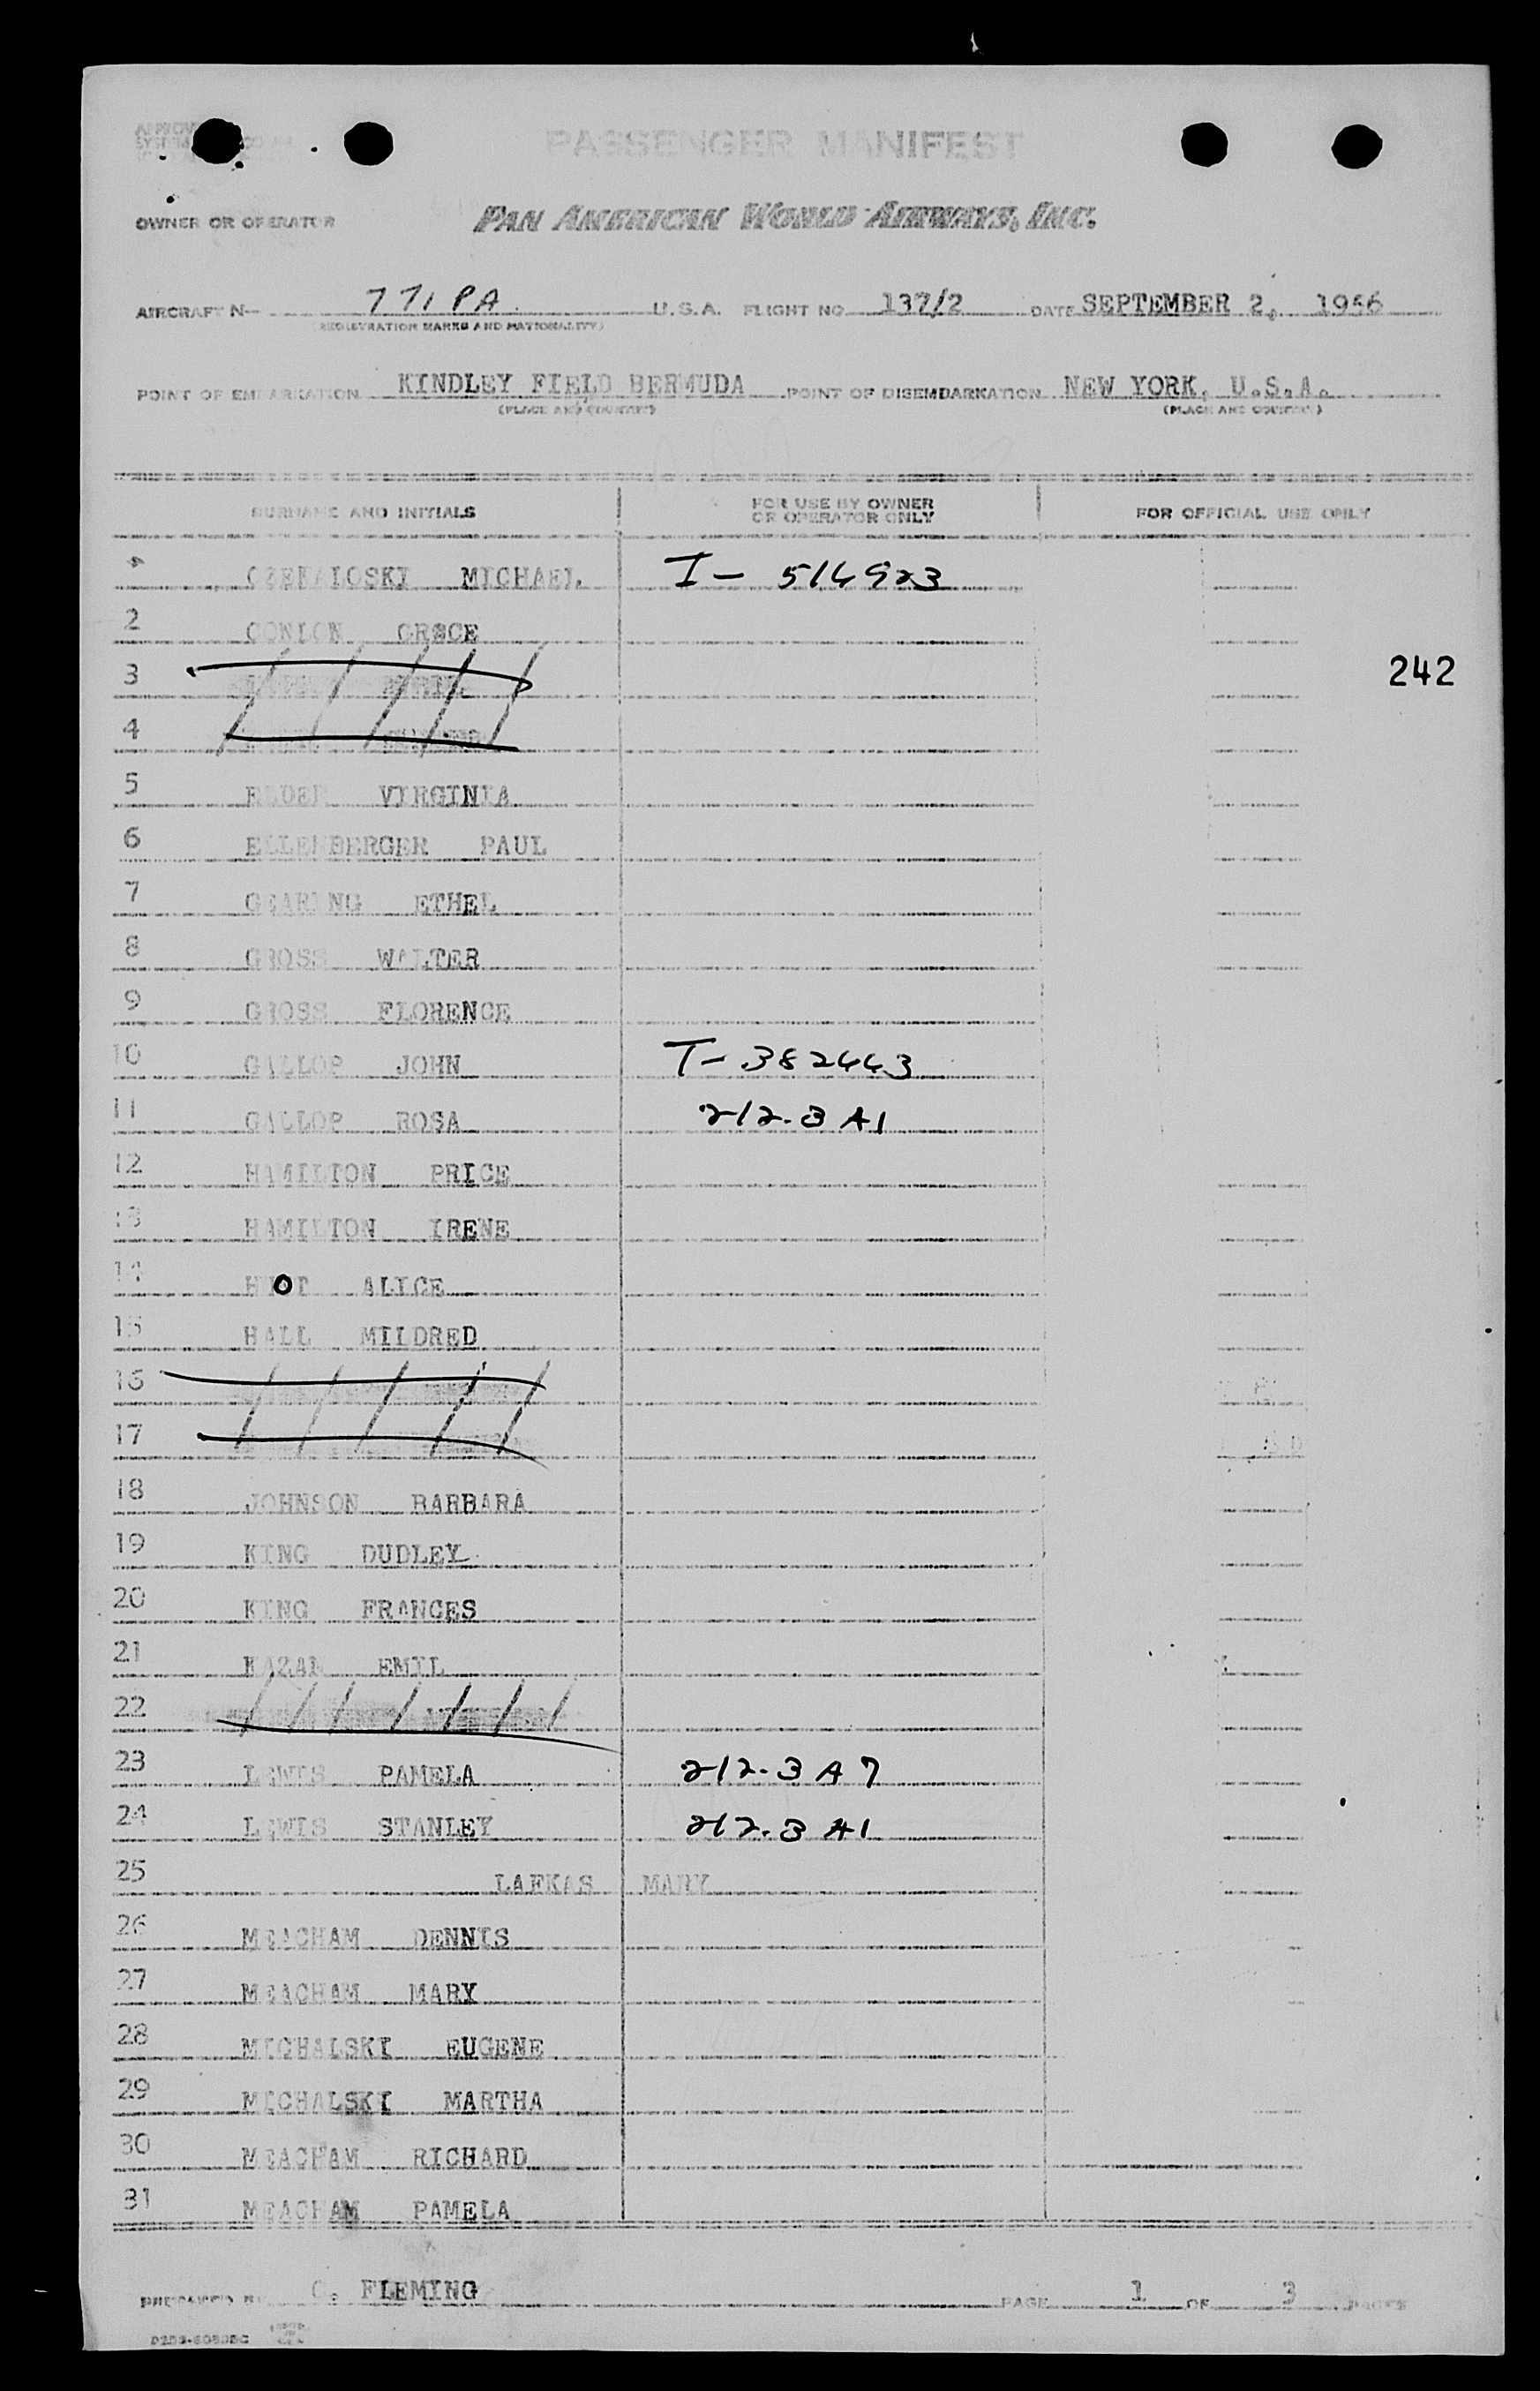 PASSENGER MANIFEST
OWNER OR OPERATOR PAN AMERICAN WORLD AIRWAYS, INC.
AIRCRAFT N— 771 PA U.S.A. FLIGHT NO 137/2 DATE SEPTEMBER 2, 1956
(REGISTRATION MARKS AND NATIONALITY)
POINT OF EMBARKATION KINDLEY FIELD BERMUDA POINT OF DISEMBARKATION NEW YORK, U.S.A.
(PLACE AND COUNTRY) (PLACE AND COUNTRY)
SURNAME AND INITIALS FOR USE BY OWNER OR OPERATOR ONLY FOR OFFICIAL USE ONLY
MICHAEL I- 514923
2 CONLON GRSCE
3
242
4
5 ELDER VIRGINIA
6 ELLENBERGER PAUL
7 GEARING ETHEL
8 GROSS WALTER
9 GROSS FLORENCE
10 GALLOP JOHN T- 382443
11 GALLOP ROSA 212.3 A1
12 HAMILTON PRICE
13 HAMILTON IRENE
14 ALICE
15 HALL MILDRED
16
17
18 JOHNSON BARBARA
19 KING DUDLEY
20 KING FRANCES
21 KAZAN EMIL
22
23 LEWIS PAMELA 212.3 A7
24 LEWIS STANLEY 212.3 A1
25 LAFKAS MARY
26 MEACHAM DENNIS
27 MEACHAM MARY
28 MICHALSKI EUGENE
29 MICHALSKI MARTHA
30 MEACHAM RICHARD
31 MEACHAM PAMELA
PREPARED BY C. FLEMING PAGE 1 OF 3 PAGES